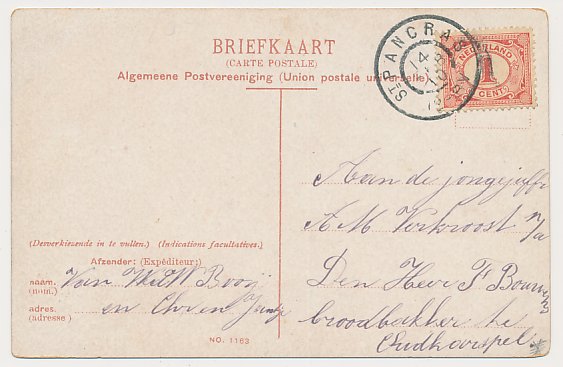 BRIEFKAART
(CARTE POSTALE)
Algemeene Postvereeniging (Union postale universelle)
ST PANCRAS
14
NEDERLAND
1
CENT
Aan de jongejuffr
A M Verkroost p/a
Den Heer F Bouwens
broodbakker te
Oudkarspel
(Desverkiezende in te vullen.) (Indications facultatives.)
Afzender: (Expéditeur:)
naam. (nom.) Van W Booij
adres. (adresse) en Chr en Jantje
NO. 1163